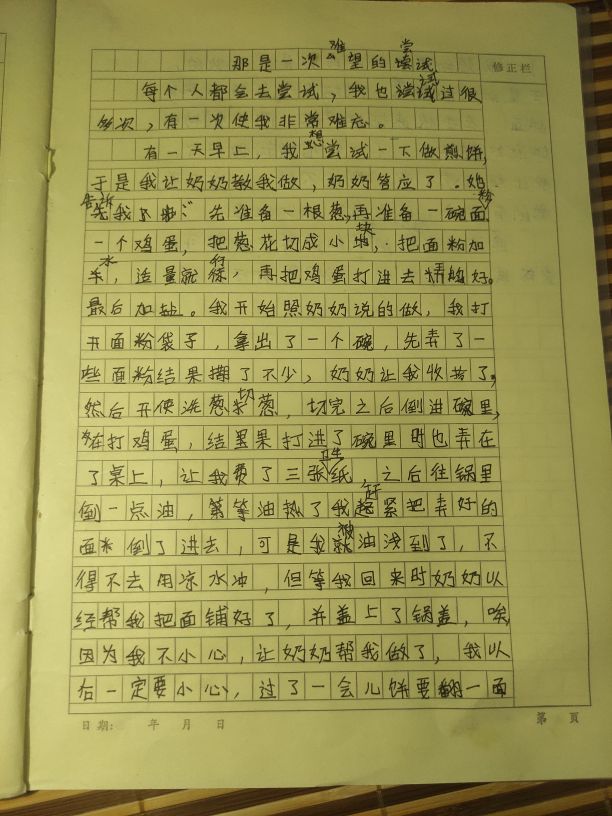 那是一次难忘的尝试
修正栏
每个人都会去尝试，我也尝试过很
多次，有一次使我非常难忘。
有一天早上，我想尝试一下做煎饼，
于是我让奶奶教我做，奶奶答应了。她
告诉我：先准备一根葱，再准备一碗面粉
一个鸡蛋，把葱花切成小块，把面粉加
水，适量就行，再把鸡蛋打进去搅好。
最后加盐。我开始照奶奶说的做，我打
开面粉袋子，拿出了一个碗，先弄了一
些面粉结果撒了不少，奶奶让我收拾了，
然后开使洗葱切葱，切完之后倒进碗里，
在打鸡蛋，结果打进了碗里时也弄在
了桌上，让我费了三张卫生纸，之后往锅里
倒一点油，等油热了我赶紧把弄好的
面倒了进去，可是我被油浅到了，不
得不去用凉水冲，但等我回来时奶奶以
经帮我把面铺好了，并盖上了锅盖，唉，
因为我不小心，让奶奶帮我做了，我以
后一定要小心，过了一会儿饼要翻一面
日期： 年 月 日
第 頁